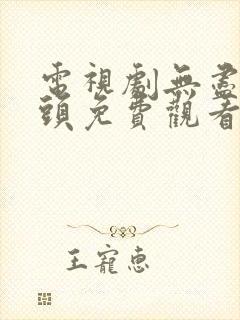 電視劇無盡
頭免費觀看
王寵惠